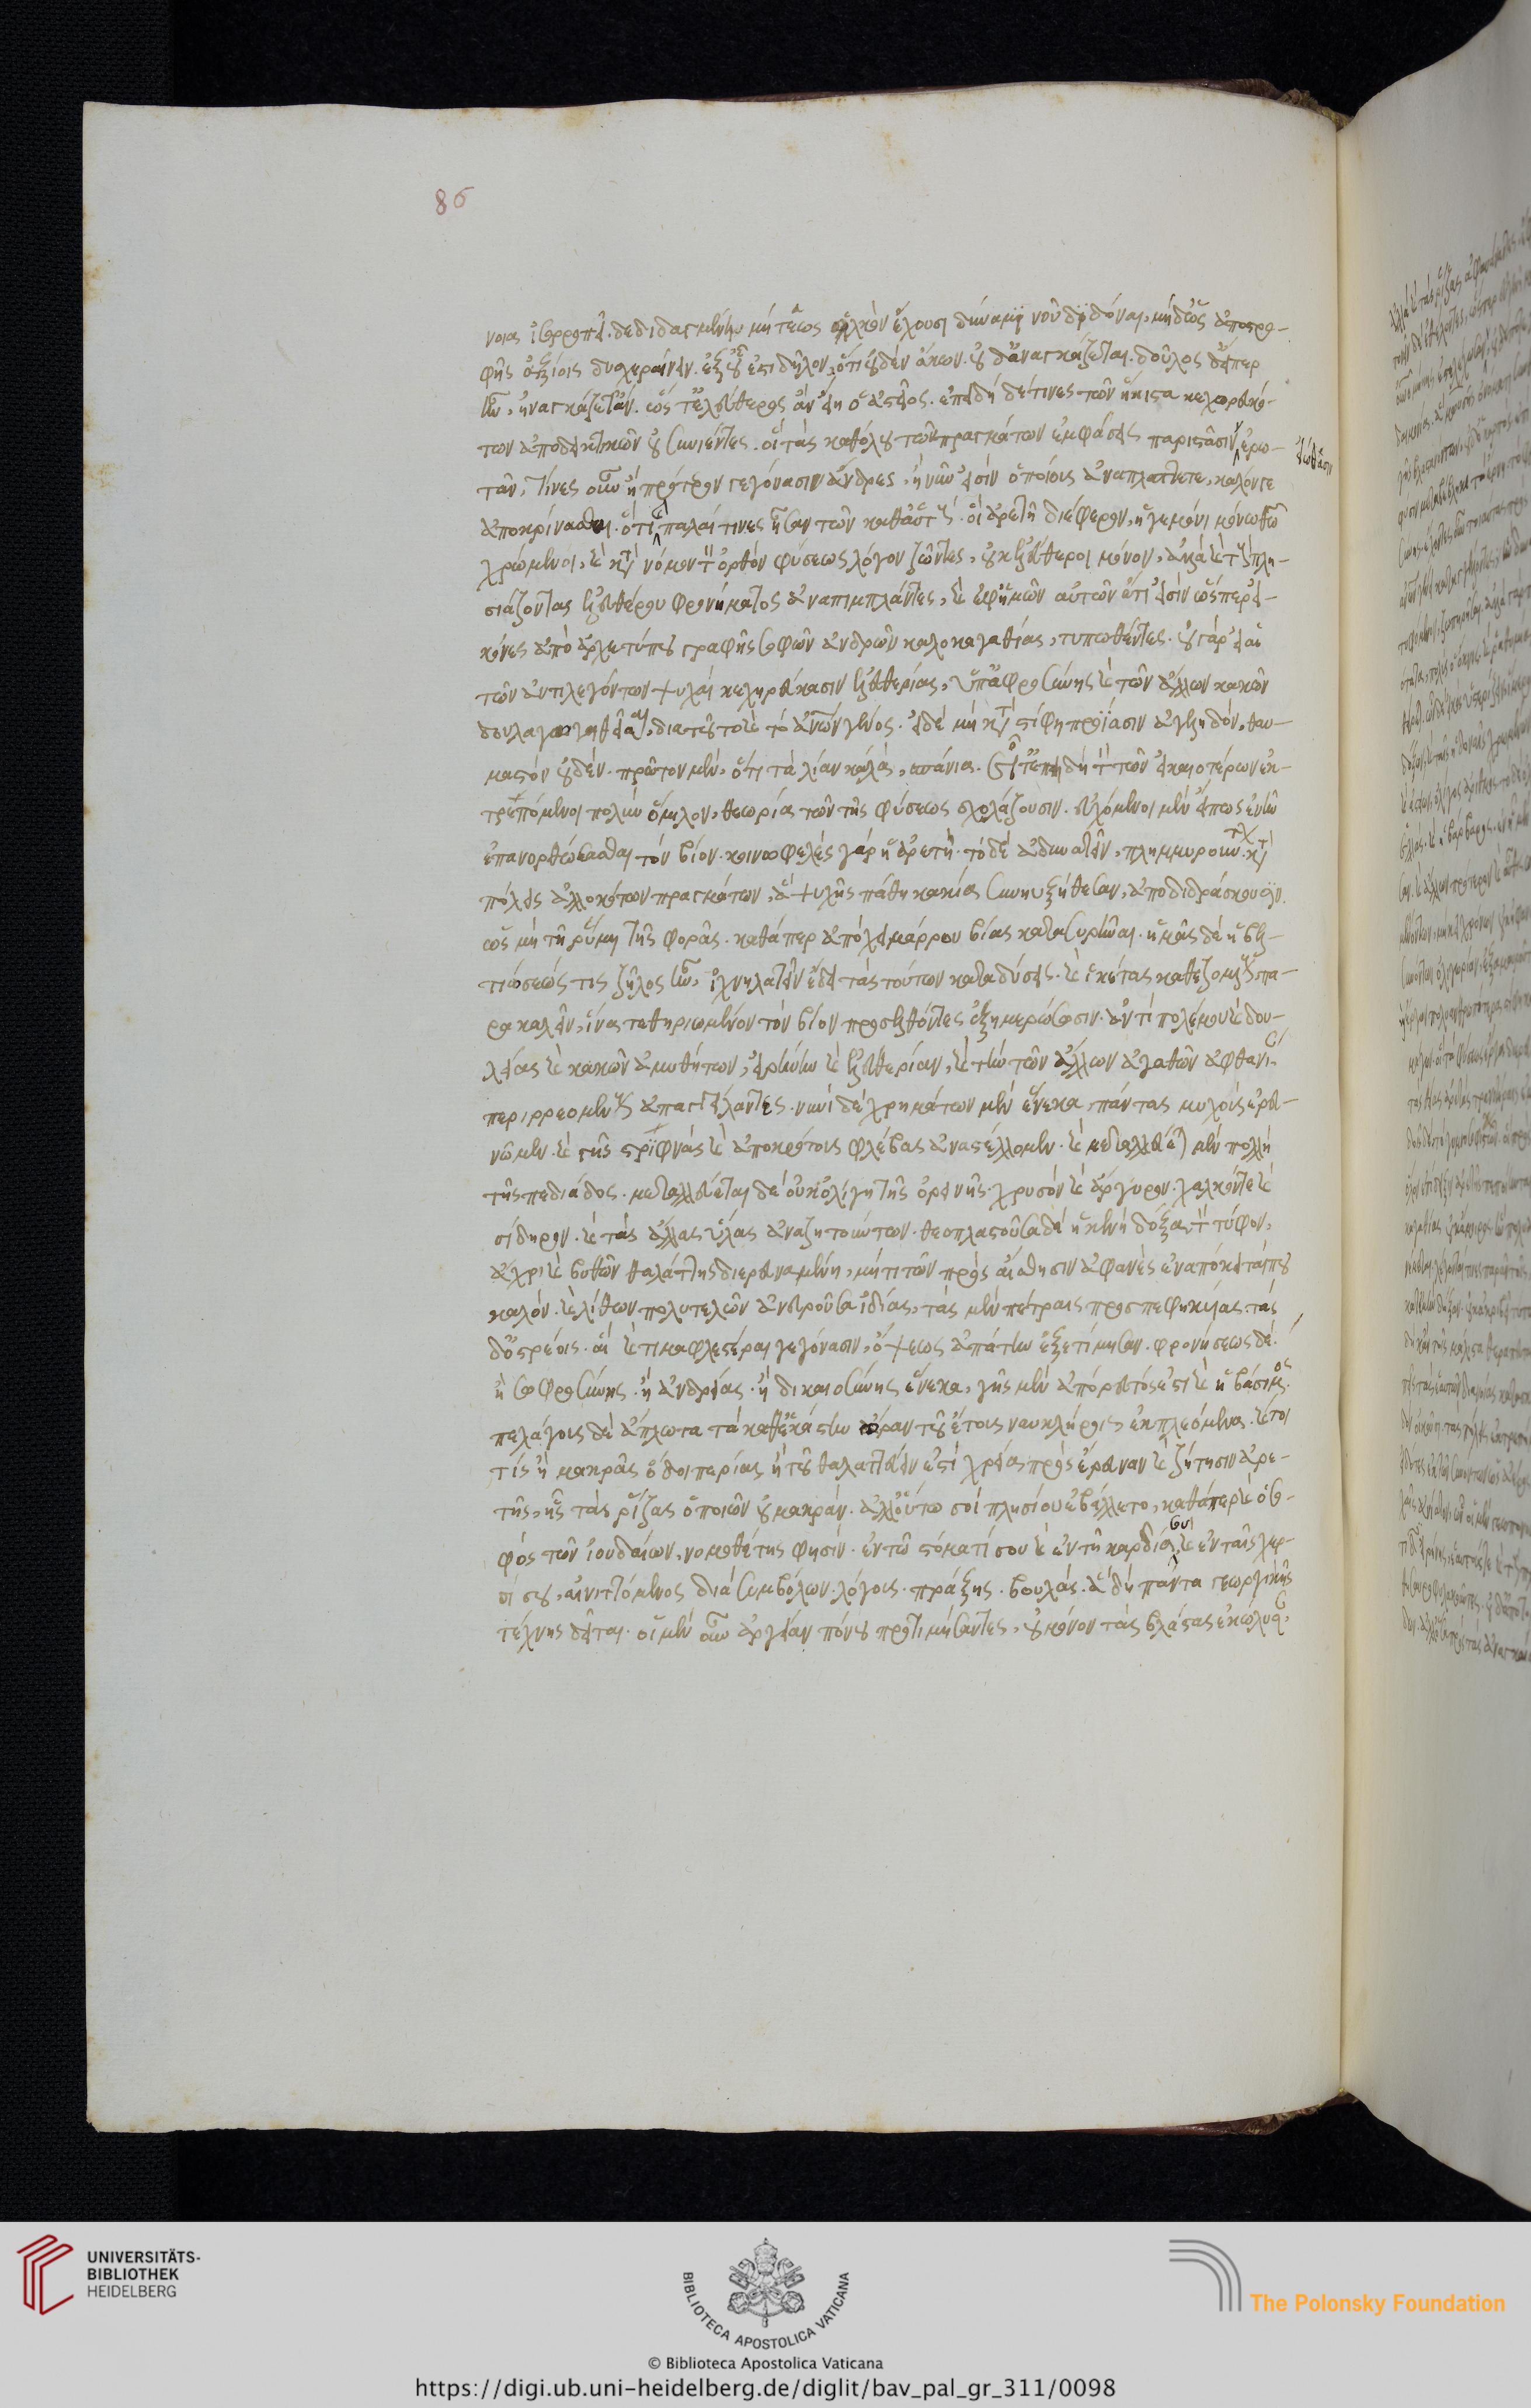 νοιας ἰσορροπεῖ. δεδιδαγμένην μήτε ὡς ὁλκὸν ἔχουσι δύναμιν νοῦ διδόναι, μήδ' ὡς ἀποστρο-
φῆς ἀξίοις δυσχεραίνειν. ἐξ οὗ ἐστι δῆλον, ὅτι οὐδὲν ἄκων. οὐδ' ἀναγκάζεται. δοῦλος δ' εἴπερ
ἦν, ἠναγκάζετ' ἄν. ὥς τ' ἐλεύθερος ἂν εἴη ὁ ἀστεῖος. ἐπειδὴ δέ τινες τῶν ἥκιστα κεχορευκό-
των ἀποδεικτικῶν οὐ συνιέντες. οἳ τὰς καθόλου τῶν πραγμάτων ἐμφάσεις παριστᾶσιν, ἐρω- εἰώθασιν
τᾶν, τίνες οὖν ἢ πρότερον γεγόνασιν ἄνδρες, ἢ νῦν εἰσὶν ὁποίοις ἀναπλάττετε, καλόν γε
ἀποκρίνασθαι. ὅτι καὶ πάλαι τινες ἦσαν τῶν καθ' αὑτοὺς. οἳ ἀρετῇ διέφερον, ἡγεμόνι μόνῳ θεῷ
χρώμενοι, καὶ κατὰ νόμον τὸν ὀρθὸν φύσεως λόγον ζῶντες, οὐκ ἐλεύθεροι μόνον, ἀλλὰ καὶ τοὺς πλη-
σιάζοντας ἐλευθέρου φρονήματος ἀναπιμπλάντες, καὶ ἐφ' ἡμῶν αὐτῶν ἔτι εἰσὶν ὥσπερ εἰ-
κόνες ἀπὸ ἀρχετύπου γραφῆς σοφῶν ἀνδρῶν καλοκαγαθίας, τυπωθέντες. οὐ γὰρ εἰ αἱ
τῶν ἀντιλεγόντων ψυχαὶ κεχηρεύκασιν ἐλευθερίας, ὑπ' ἀφροσύνης καὶ τῶν ἄλλων κακῶν
δουλαγωγηθεῖσαι, διὰ τοῦτο καὶ τὸ ἀνθρώπων γένος. εἰ δὲ μὴ κατὰ στίφη προΐασιν ἀγεληδόν, θαυ-
μαστὸν οὐδέν. πρῶτον μὲν, ὅτι τὰ λίαν καλὰ, σπάνια. εἶτ' ἐπειδὴ τὸν τῶν εἰκαιοτέρων ἐκ-
τρεπόμενοι πολὺν ὅμιλον, θεωρίᾳ τῶν τῆς φύσεως σχολάζουσιν. εὐχόμενοι μὲν εἴ πως ἐνῆν
ἐπανορθώσασθαι τὸν βίον. κοινωφελὲς γὰρ ἡ ἀρετὴ. τὸ δὲ ἀδυνατεῖν, πλημμυρούντων κατὰ
πόλεις ἀλλοκότων πραγμάτων, ἃ ψυχῆς πάθη κακίας συνηυξήθησαν, ἀποδιδράσκουσιν.
ὡς μὴ τῇ ῥύμῃ τῆς φορᾶς. καθάπερ ἀπὸ χειμάρρου βίας κατασυρῶσι. ἡμᾶς δὲ εἰ βελ-
τιώσεώς τις ζῆλος ἦν, ἰχνηλατεῖν ἔδει τὰς τούτων καταδύσεις. καὶ ἱκέτας καθεζομένους πα-
ρακαλεῖν, ἵνα τεθηριωμένον τὸν βίον προσελθόντες ἐξημερώσωσιν. ἀντὶ πολέμου καὶ δου-
λείας καὶ κακῶν ἀμυθήτων, εἰρήνην καὶ ἐλευθερίαν, καὶ τὴν τῶν ἄλλων ἀγαθῶν ἀφθονί-
περιρρεομένους ἀπαγγείλαντες. νυνὶ δὲ χρημάτων μὲν ἕνεκα, πάντας μυχοὺς ἐρευ-
νῶμεν. καὶ γῆς στρϊφνὰς καὶ ἀποκρότους φλέβας ἀναστέλλομεν. καὶ μεταλλεύεται μὲν πολλὴ
τῆς πεδιάδος. μεταλλεύεται δὲ οὐκ ὀλίγη τῆς ὀρεινῆς. χρυσὸν καὶ ἄργυρον. χαλκόν τε καὶ
σίδηρον. καὶ τὰς ἄλλας ὕλας ἀναζητούντων. θεοπλαστοῦσα δὲ ἡ κενὴ δόξα, τὸν τύφον,
ἄχρι καὶ βυθῶν θαλάττης διερευναμένη, μή τι τῶν πρὸς αἴσθησιν ἀφανὲς ἐναπόκειταί που
καλόν. καὶ λίθων πολυτελῶν ἀνευροῦσα ἰδέας, τὰς μὲν πέτραις προσπεφηκυίας. τὰς
δ' ὀστρέοις. αἳ καὶ τιμαφλέστεραι γεγόνασιν, ὄψεως ἀπάτην ἐξετίμησαν. φρονήσεως δὲ.
ἢ σωφροσύνης. ἢ ἀνδρείας. ἢ δικαιοσύνης ἕνεκα, γῆς μὲν ἀπόρευτός ἐστι καὶ ἡ βάσιμος.
πελάγους δὲ ἄπλωτα τὰ καθ' ἑκάστην ὥραν τοῦ ἔτους ναυκλήροις ἐκπλεόμενα. καί τοι
τίς ἢ μακρᾶς ὁδοιπορίας ἢ τοῦ θαλαττεύειν ἐστὶ χρείας πρὸς ἔρευναν καὶ ζήτησιν ἀρε-
τῆς, ἧς τὰς ῥίζας ὁ ποιῶν οὐ μακράν. ἀλλ' οὕτω σοὶ πλησίον ἐβάλλετο, καθάπερ καὶ ὁ σο-
φὸς τῶν ἰουδαίων, νομοθέτης φησὶν. ἐν τῷ στόματί σου καὶ ἐν τῇ καρδίᾳ σου καὶ ἐν ταῖς χερ-
σί σου, αἰνιττόμενος διὰ συμβόλων. λόγους. πράξης. βουλάς. ἃ δὴ πάντα γεωργικῆς
τέχνης δεῖται. οἱ μὲν οὖν ἀργείαν πόνου προτιμήσαντες, οὐ μόνον τὰς βλάστας ἐκώλυσαν,
86
UNIVERSITÄTS-
BIBLIOTHEK
HEIDELBERG
BIBLIOTECA APOSTOLICA VATICANA
The Polonsky Foundation
© Biblioteca Apostolica Vaticana
https://digi.ub.uni-heidelberg.de/diglit/bav_pal_gr_311/0098